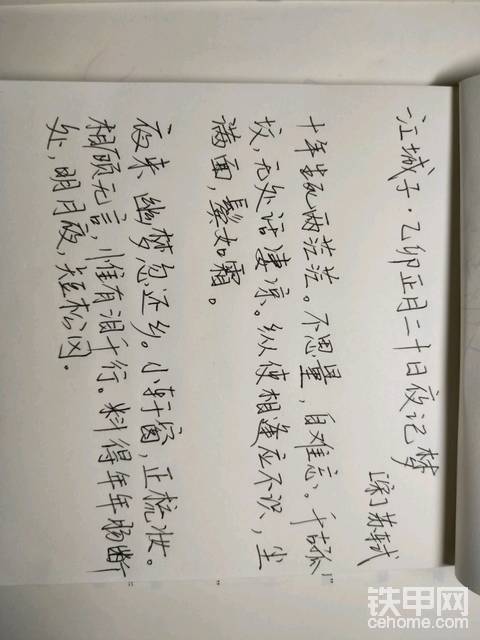 江城子·乙卯正月二十日夜记梦
[宋] 苏轼
十年生死两茫茫。不思量,自难忘。千里孤
坟,无处话凄凉。纵使相逢应不识,尘
满面,鬓如霜。
夜来幽梦忽还乡。小轩窗,正梳妆。
相顾无言,惟有泪千行。料得年年肠断
处,明月夜,短松冈。
铁甲网
cehome.com